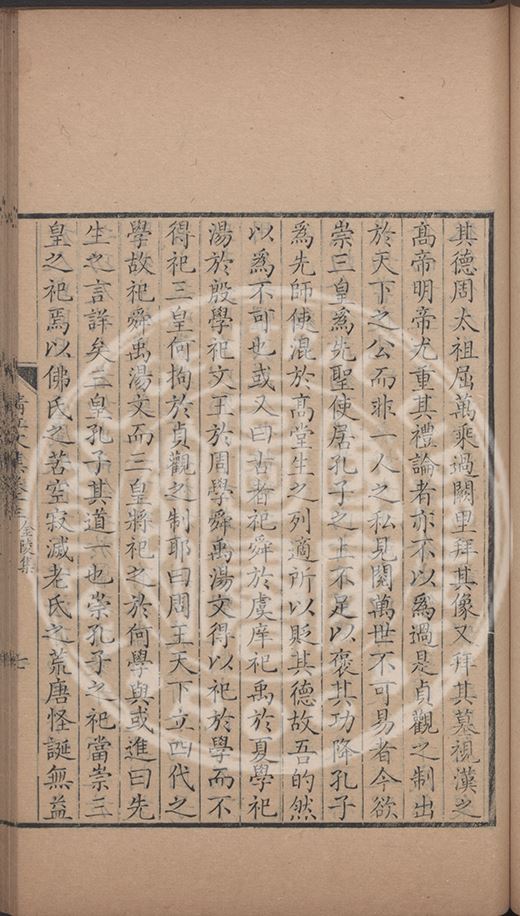 其德周太祖屈萬乘過闕里拜其像又拜其墓視漢之
高帝明帝尤重其禮論者亦不以爲過是貞觀之制出
於天下之公而非一人之私見閱萬世不可易者今欲
崇三皇爲先聖使居孔子之上不足以褒其功降孔子
爲先師使混於高堂生之列適所以貶其德故吾的然
以爲不可也或又曰古者祀舜於虞庠祀禹於夏學祀
湯於殷學祀文王於周學舜禹湯文得以祀於學而不
得祀三皇何拘於貞觀之制耶曰周王天下立四代之
學故祀舜禹湯文而三皇將祀之於何學與或進曰先
生之言詳矣三皇孔子其道一也崇孔子之祀當崇三
皇之祀焉以佛氏之苦空寂滅老氏之荒唐怪誕無益
清江文集卷之 金陵集
七